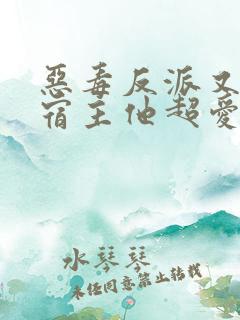 惡毒反派又
宿主他超愛
水琴琴
未经同意禁止转载